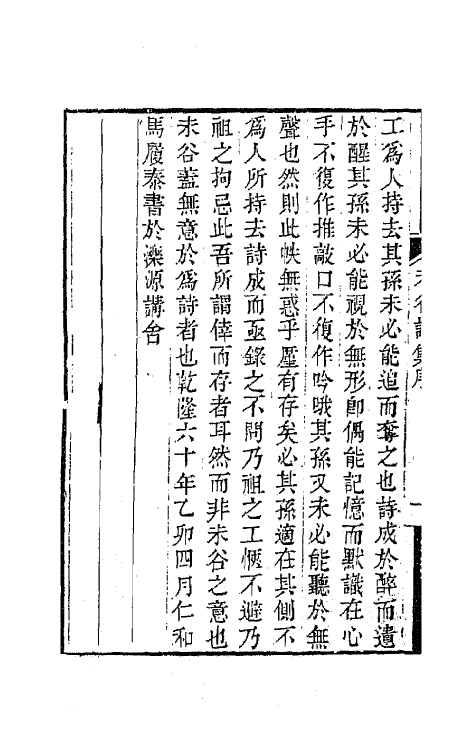 工爲人持去其孫未必能追而奪之也詩成於醉而遺
於醒其孫未必能視於無形卽偶能記憶而默識在心
手不復作推敲口不復作吟哦其孫又未必能聽於無
聲也然則此帙無惑乎廑有存矣必其孫適在其側不
爲人所持去詩成而亟錄之不問乃祖之工惬不避乃
祖之拘忌此吾所謂倖而存者耳然而非未谷之意也
未谷蓋無意於爲詩者也乾隆六十年乙卯四月仁和
馬履泰書於濼源講舍
未谷詩集序
一